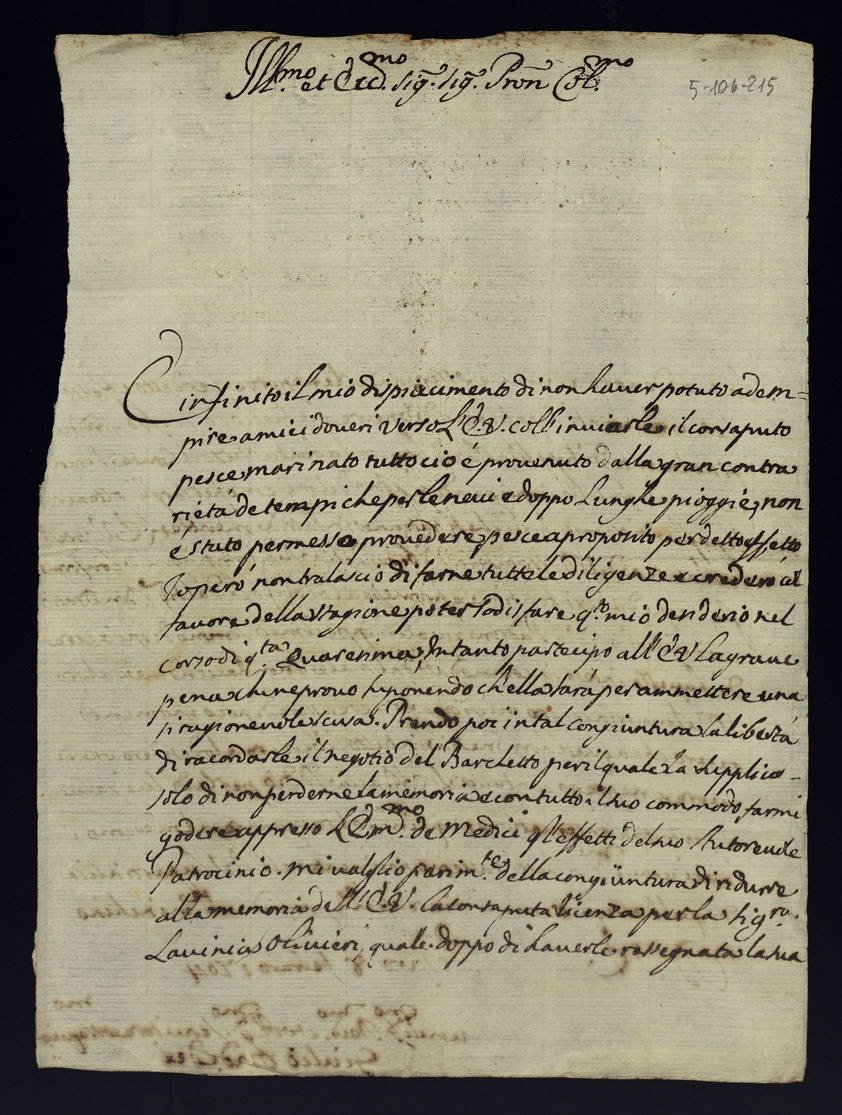 Ill.mo et Ecc.mo Sig.r Sig.r Pron Col.mo
5-106-215
E infinito il mio dispiacimento di non haver potuto adem=
pire a miei doveri verso L'E.V. coll'inviarle il consaputo
pesce marinato tutto ciò é provenuto dalla gran contra
rietá de tempi che per le nevi e doppo lunghe pioggie, non
é stato permesso provedere pesce a proposito per detto effetto
Io peró non tralascio di farne tutte le diligenze e crederó col
favore della stagione poter sodisfare q.to mio desiderio nel
corso di q.ta Quaresima, Intanto partecipo all'E.V. la grave
pena ch'ne provo suponendo ch'ella sará per ammettere una
si ragionevole scusa. Prendo poi in tal congiuntura la libertá
di racordarle il negotio del Barchetto per il quale la supplico
solo di non perderne la memoria e con tutto il suo commodo farmi
godere appresso L'Em.mo de Medici gl'effetti del suo Autorevole
Patrocinio. mi vaglio parim.te della congiuntura di ridurre
alla memoria dell'E.V. la consaputa licenza per la Sig.ra
Lavinia Olivieri, quale doppo di haverle rassegnata la sua